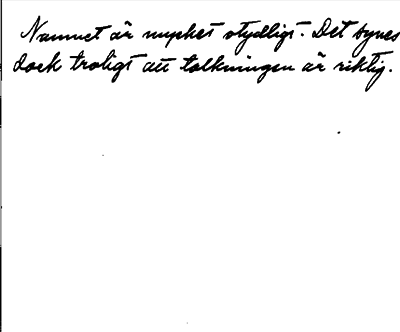 Namnet är mycket otydligt. Det synes
dock troligt att tolkningen är riktig.